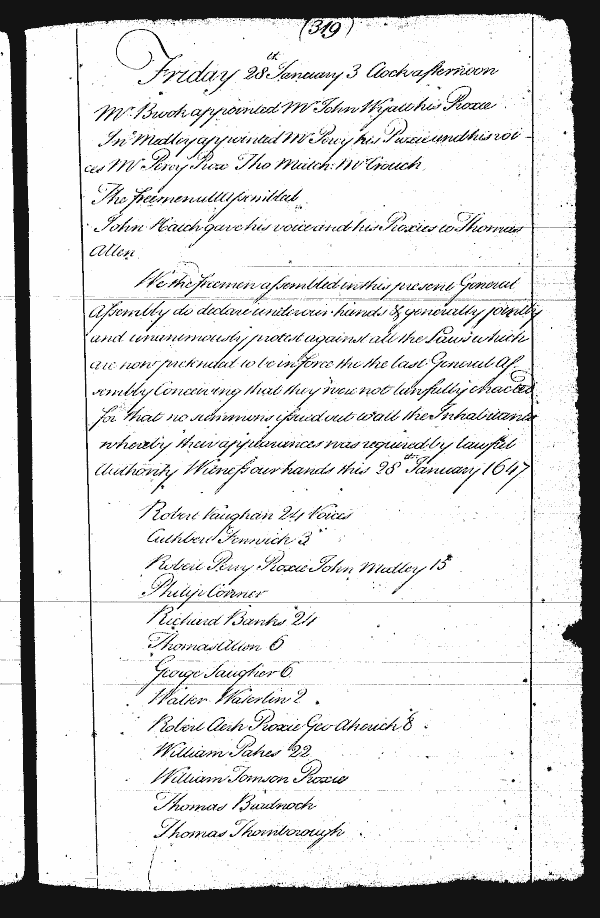 (319)
Friday 28th January 3 Clock afternoon
Mr. Brook appointed Mr. John Wyatt his Proxie
Jn. Medley appointed Mr. Percy his Proxie and his voi-
ces Mr. Percy Prox Tho Mr Crouch
The freemen all Assembled
John Hatch gave his voice and his Proxies to Thomas
Allen
We the freemen assembled in this present General
Assembly do declare under our hands & generally jointly
and unanimously protest against all the Laws which
are now pretended to be in force the the last General As-
sembly Conceiving that they were not lawfully enacted
for that no summons issued out to all the Inhabitants
whereby their appearances was required by lawful
Authority Witness our hands this 28th January 1647
Robert Vaughan 24 Voices
Cuthbert Fenwick 3
Robert Percy Proxie John Medley 15
Philip Conner
Richard Banks 24
Thomas 6
George Saugher 6
Walter Waterlin 2
Robert Clerk Proxie Geo 8
William 22
William Tomson Proxie
Thomas
Thomas Thornborough